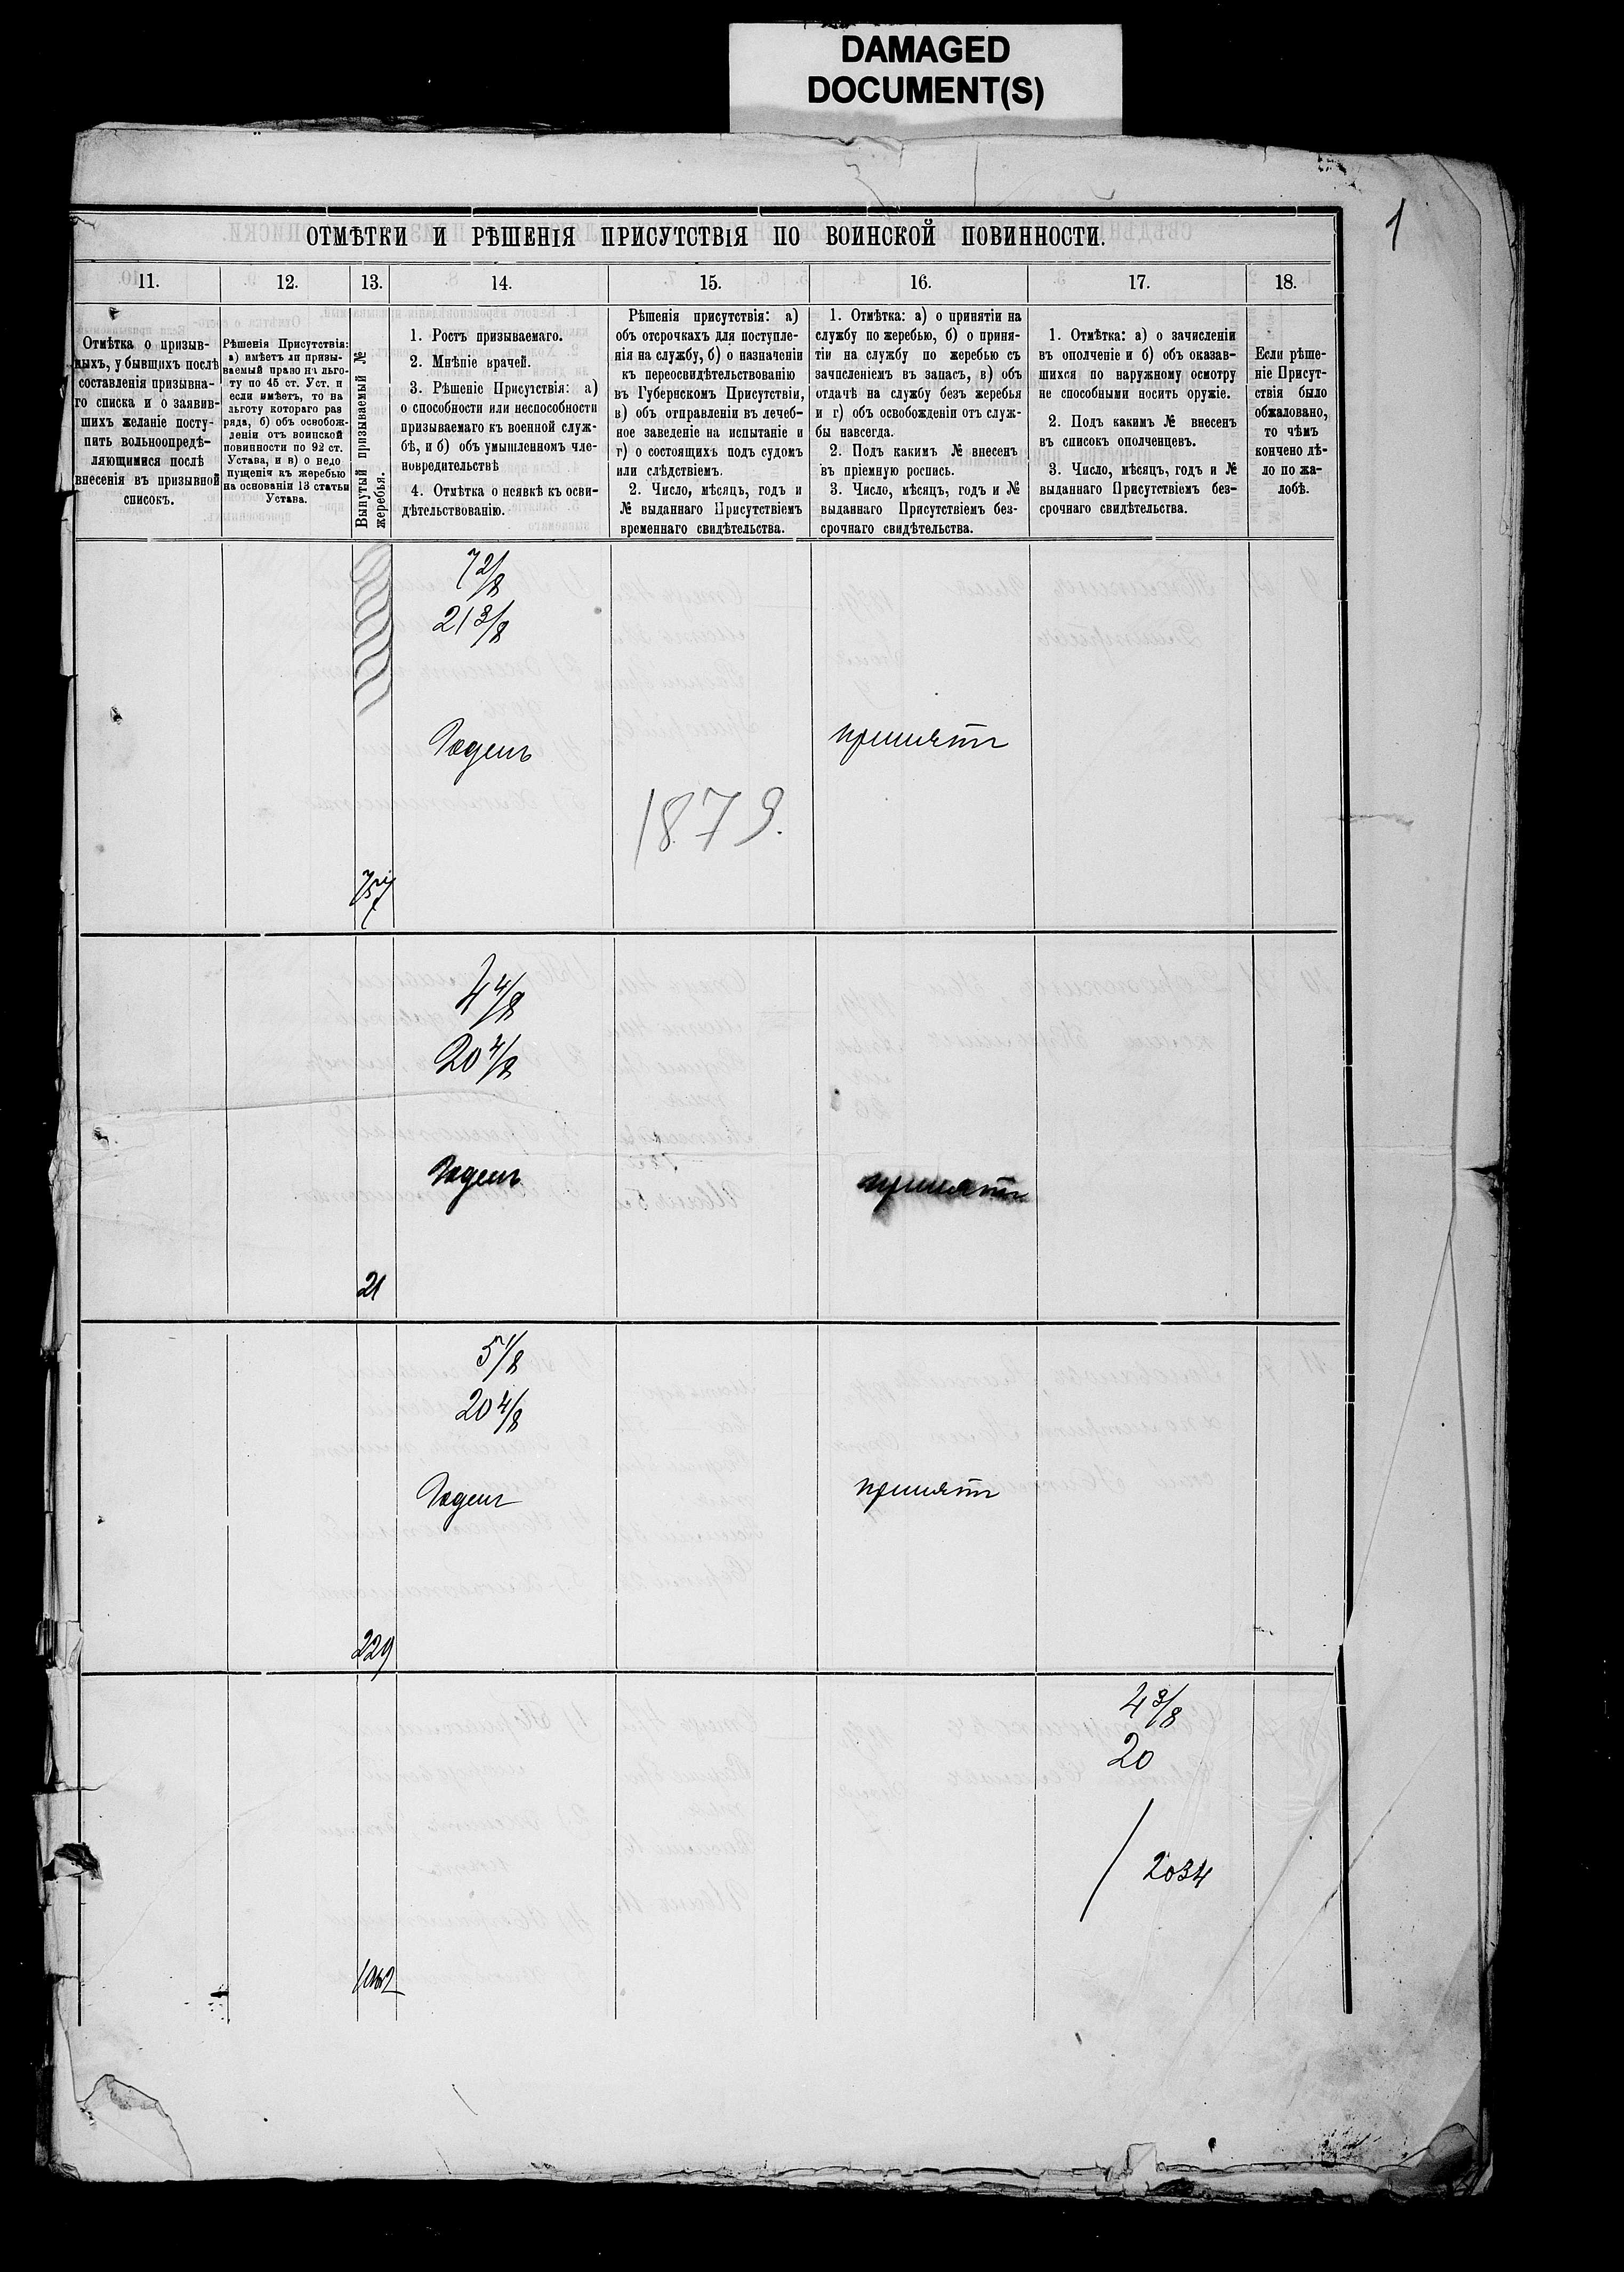 DAMAGED
DOCUMENT(S)
1
ОТМѢТКИ И РѢШЕНІЯ ПРИСУТСТВІЯ ПО ВОИНСКОЙ ПОВИННОСТИ.
11.
12.
13.
14.
15.
16.
17.
18.
Отмѣтка о призыв-
ныхъ, у бывшихъ послѣ
составленія призывна-
го списка и о заявив-
шихъ желаніе посту-
пить вольноопредѣ-
ляющимися послѣ
внесенія въ призывной
списокъ.
Рѣшенія Присутствія:
а) имѣетъ ли призы-
ваемый право на льго-
ту по 45 ст. Уст. и
если имѣетъ, то на
льготу котораго раз
ряда, б) объ освобож-
деніи отъ воинской
повинности по 92 ст.
Устава, и в) о недо
пущеніи къ жеребью
на основаніи 13 статьи
Устава.
Вынутый призываемый №
жеребья.
1. Ростъ призываемаго.
2. Мнѣніе врачей.
3. Рѣшеніе Присутствія: а)
о способности или неспособности
призываемаго къ военной служ-
бѣ, и б) объ умышленномъ чле-
новредительствѣ
4. Отмѣтка о неявкѣ къ осви-
дѣтельствованію.
Рѣшенія присутствія: а)
объ отсрочкахъ для поступле-
нія на службу, б) о назначеніи
къ переосвидѣтельствованію
въ Губернскомъ Присутствіи,
в) объ отправленіи въ лечеб-
ное заведеніе на испытаніе и
г) о состоящихъ подъ судомъ
или слѣдствіемъ.
2. Число, мѣсяцъ, годъ и
№ выданнаго Присутствіемъ
временнаго свидѣтельства.
1. Отмѣтка: а) о принятіи на
службу по жеребью, б) о приня-
тіи на службу по жеребью съ
зачисленіемъ въ запасъ, в) объ
отдачѣ на службу безъ жеребья
и г) объ освобожденіи отъ служ-
бы навсегда.
2. Подъ какимъ № внесенъ
въ пріемную роспись.
3. Число, мѣсяцъ, годъ и №
выданнаго Присутствіемъ без-
срочнаго свидѣтельства.
1. Отмѣтка: а) о зачисленіи
въ ополченіе и б) объ оказав-
шихся по наружному осмотру
не способными носить оружіе.
2. Подъ какимъ № внесенъ
въ списокъ ополченцевъ.
3. Число, мѣсяцъ, годъ и №
выданнаго Присутствіемъ без-
срочнаго свидѣтельства.
Если рѣше-
ніе Присут-
ствія было
обжаловано,
то чѣмъ
кончено дѣ-
ло по жа-
лобѣ.
7 2/8
21 3/8
Годенъ
принятъ
1879.
757
4 4/8
20 4/8
Годенъ
принятъ
21
5 1/8
20 4/8
Годенъ
принятъ
229
4 3/8
20
/ 2034